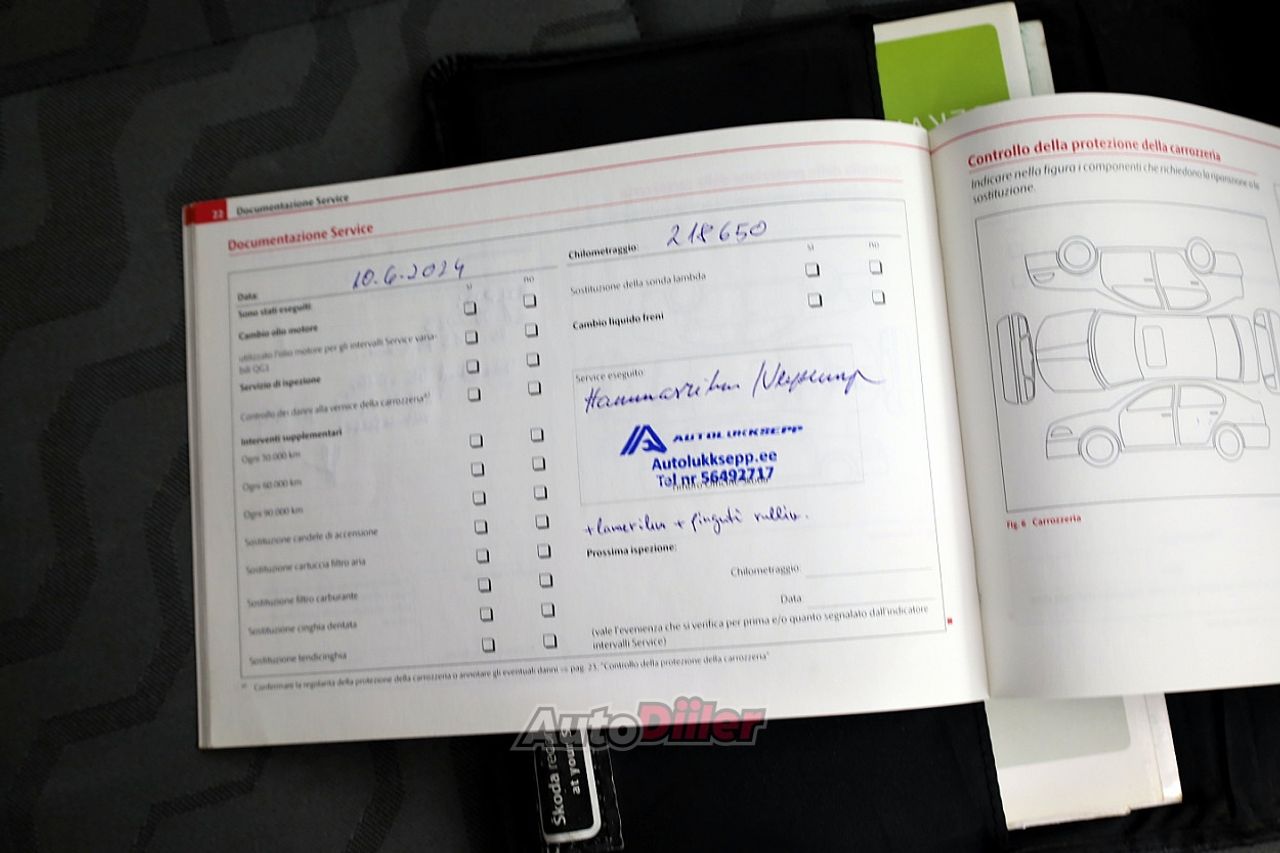 22 Documentazione Service
Documentazione Service
Data: 10.6.2024
sì no
Sono stati eseguiti
Cambio olio motore
utilizzato l'olio motore per gli intervalli Service varia-
bili QG1
Servizio di ispezione
Controllo dei danni alla vernice della carrozzeria
Interventi supplementari
Ogni 30.000 km
Ogni 60.000 km
Ogni 90.000 km
Sostituzione candele di accensione
Sostituzione cartuccia filtro aria
Sostituzione filtro carburante
Sostituzione cinghia dentata
Sostituzione tendicinghia
Chilometraggio: 218650
sì no
Sostituzione della sonda lambda
Cambio liquido freni
Service eseguito:
Hammasrihm
AUTOLUKKSEPP
Autolukksepp.ee
Tel nr 56492717
+ pinguti rulliu.
Prossima ispezione:
Chilometraggio:
Data:
(vale l'evenienza che si verifica per prima e/o quanto segnalato dall'indicatore
intervalli Service)
Confermare la regolarità della protezione della carrozzeria o annotare gli eventuali danni ⇒ pag. 23, "Controllo della protezione della carrozzeria"
Controllo della protezione della carrozzeria
Indicare nella figura i componenti che richiedono la riparazione o la
sostituzione.
Fig. 6 Carrozzeria
AutoDiiler
Škoda
at your